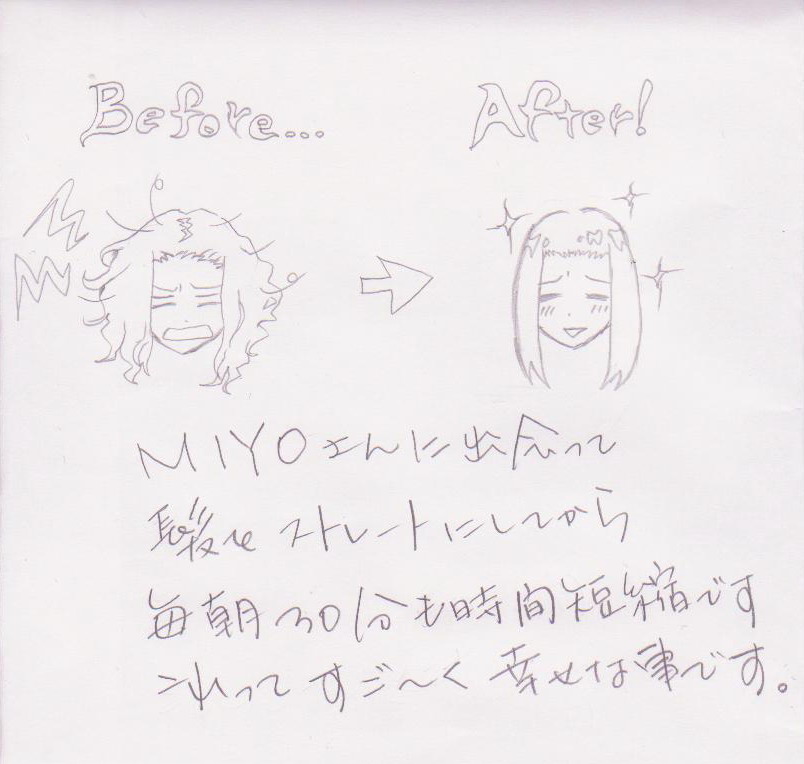 Before... After!
MIYOさんに出会って
髪をストレートにしてから
毎朝30分も時間短縮です
これってすご〜く幸せな事です。